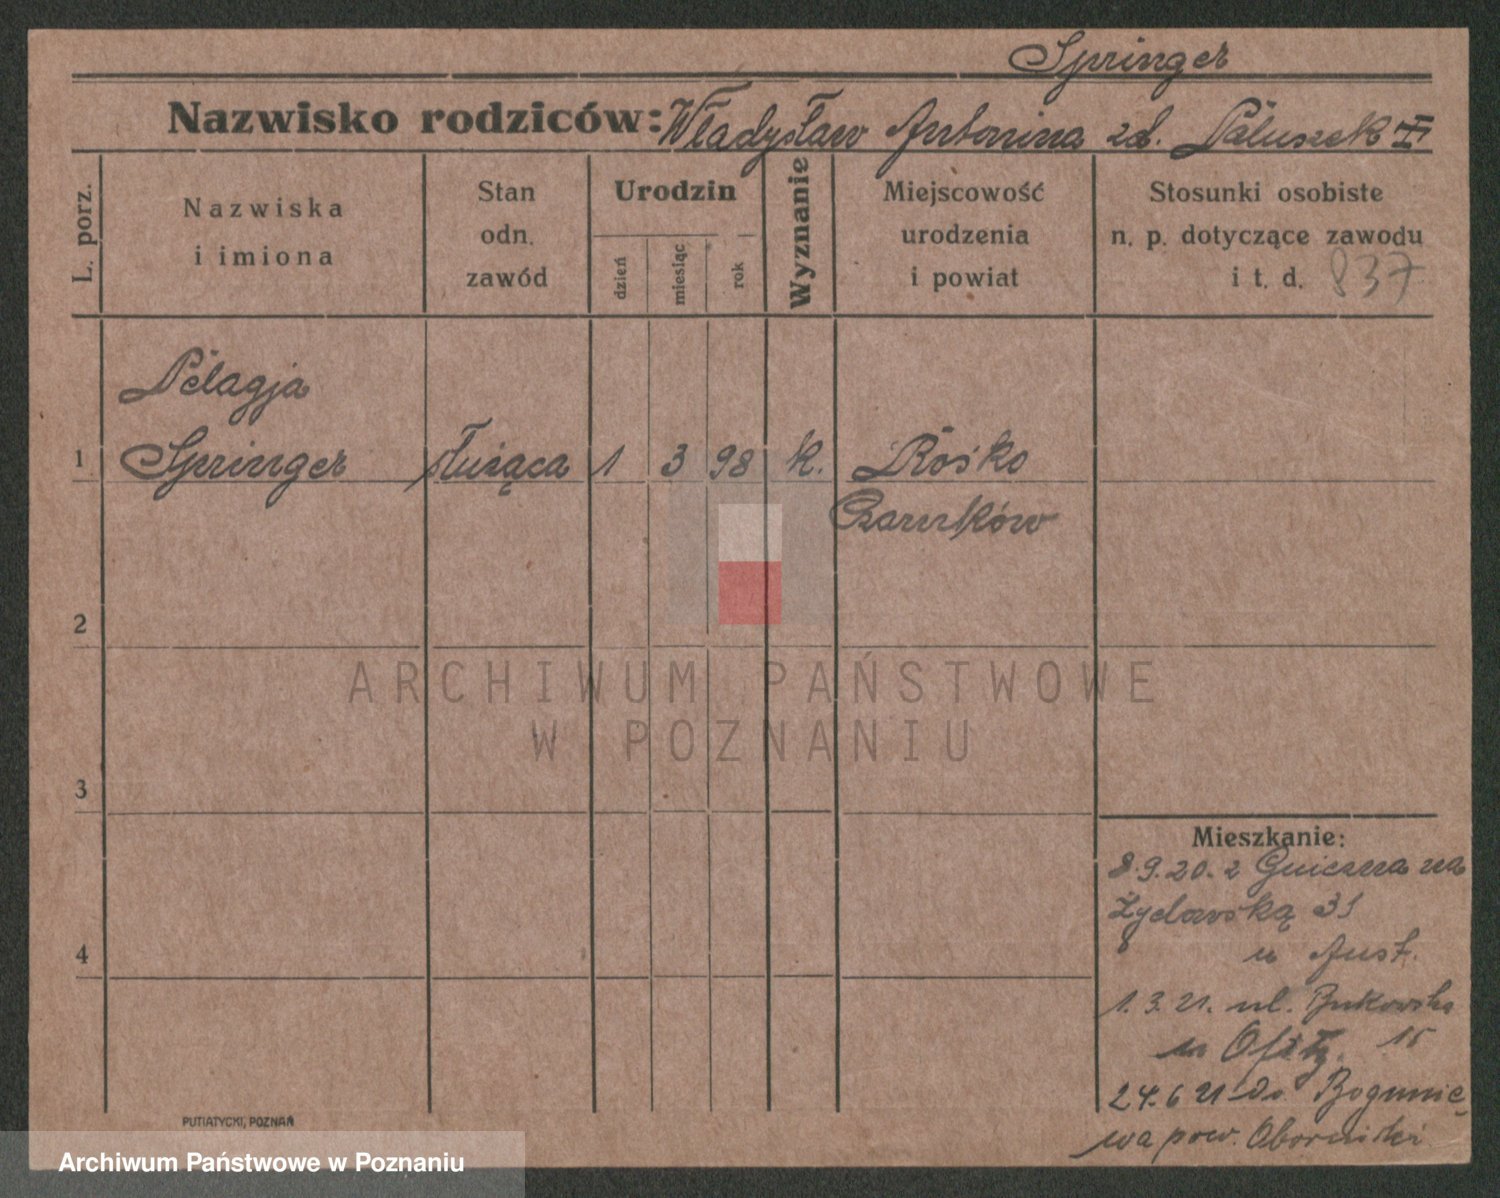 Springer
Nazwisko rodziców: Władysław Antonina zd. Paluszek
L. porz.
Nazwiska
i imiona
Stan
odn.
zawód
Urodzin
dzień
miesiąc
rok
Wyznanie
Miejscowość
urodzenia
i powiat
Stosunki osobiste
n. p. dotyczące zawodu
i t. d. 837
Pelagja
1 Springer służąca 1 3 98 k. Rosko
Czarnków
2
3
4
ARCHIWUM PAŃSTWOWE
W POZNANIU
Mieszkanie:
8.9.20. z Gniezna na
Żydowską 31
u Aust.
1.3.21. ul. Bukowska
u 15
24.6 21 do Bogunie
wa pow. Obornicki
PUTIATYCKI, POZNAŃ
Archiwum Państwowe w Poznaniu